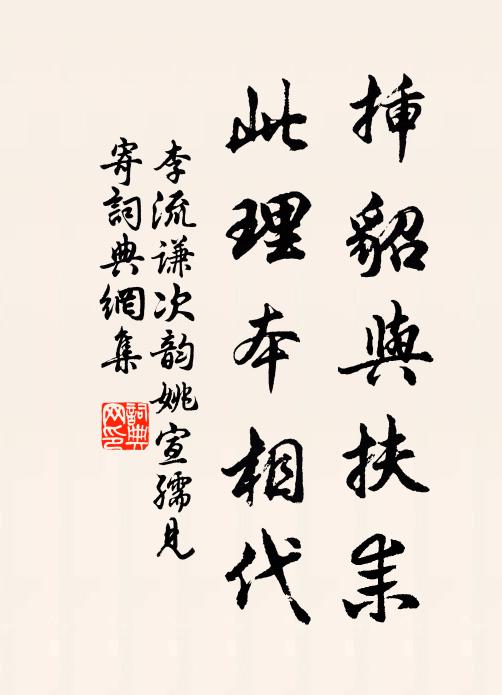 挿貂與扶耒
此理本相代
李流谦次韵姚宣孺见
寄詞典網集
詞典
网印